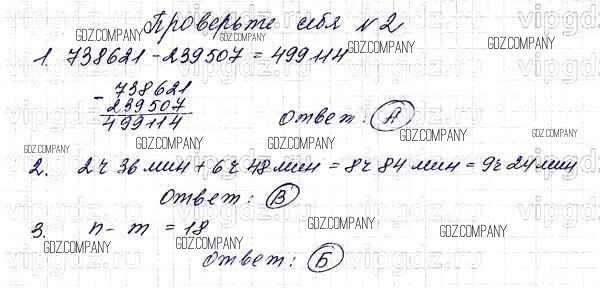 Проверьте себя №2
1. 738621 - 239507 = 499114
- 738621
239507
499114
Ответ: А
2. 2ч 36 мин + 6ч 48 мин = 8ч 84 мин = 9ч 24 мин
Ответ: В
3. n - m = 18
Ответ: Б
GDZ.COMPANY
GDZ.COMPANY
GDZ.COMPANY
GDZ.COMPANY
GDZ.COMPANY
GDZ.COMPANY
GDZ.COMPANY
GDZ.COMPANY
GDZ.COMPANY
GDZ.COMPANY
GDZ.COMPANY
GDZ.COMPANY
vipgdz.ru
vipgdz.ru
vipgdz.ru
vipgdz.ru